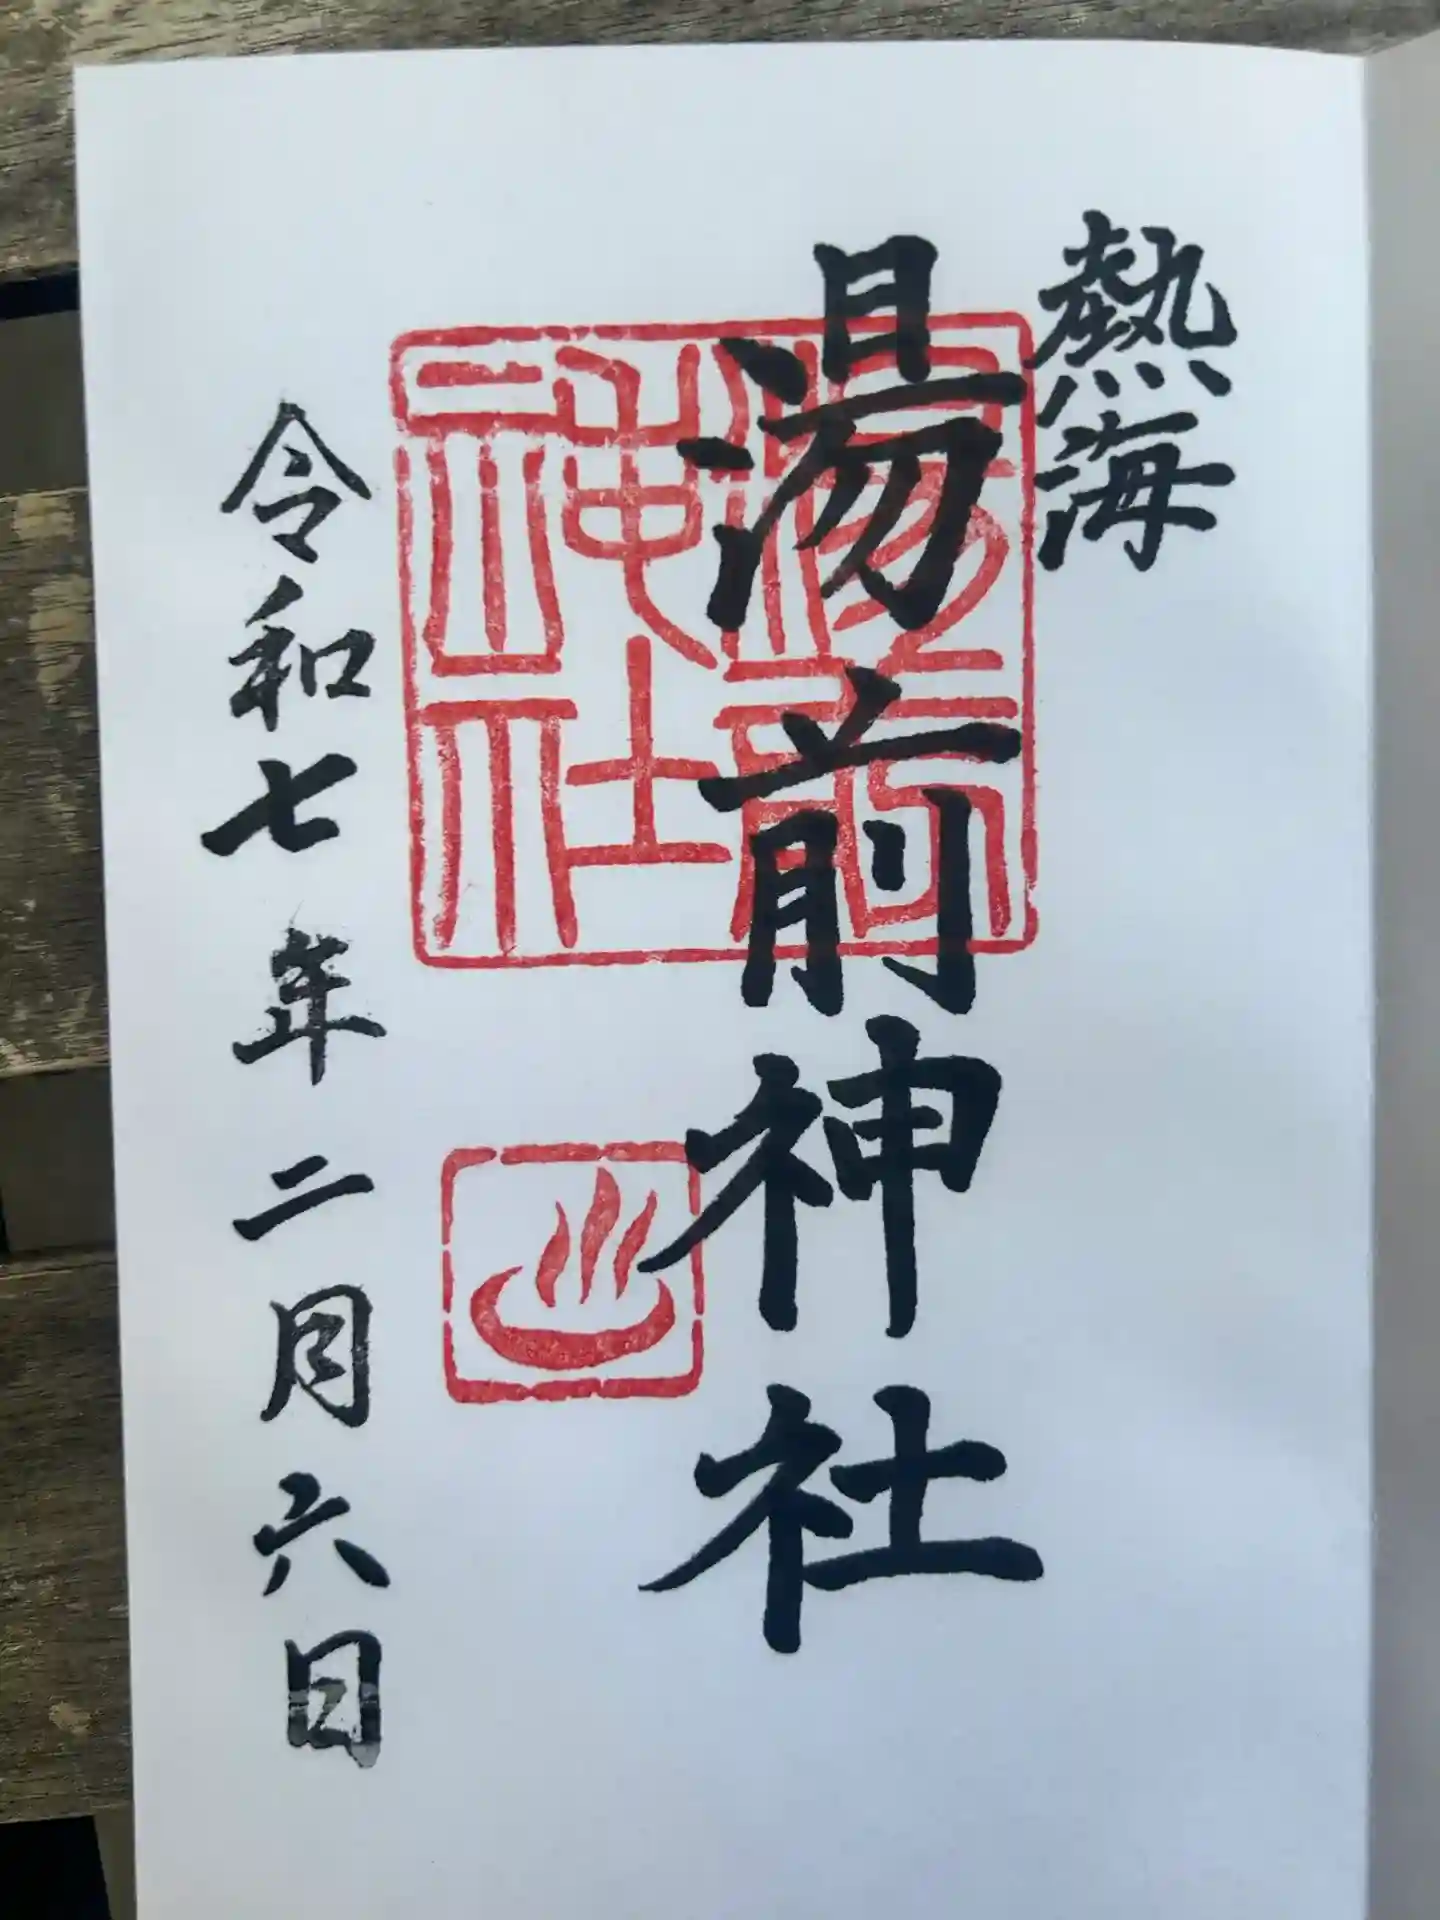 熱海
湯前神社
湯前神社
令和七年二月六日